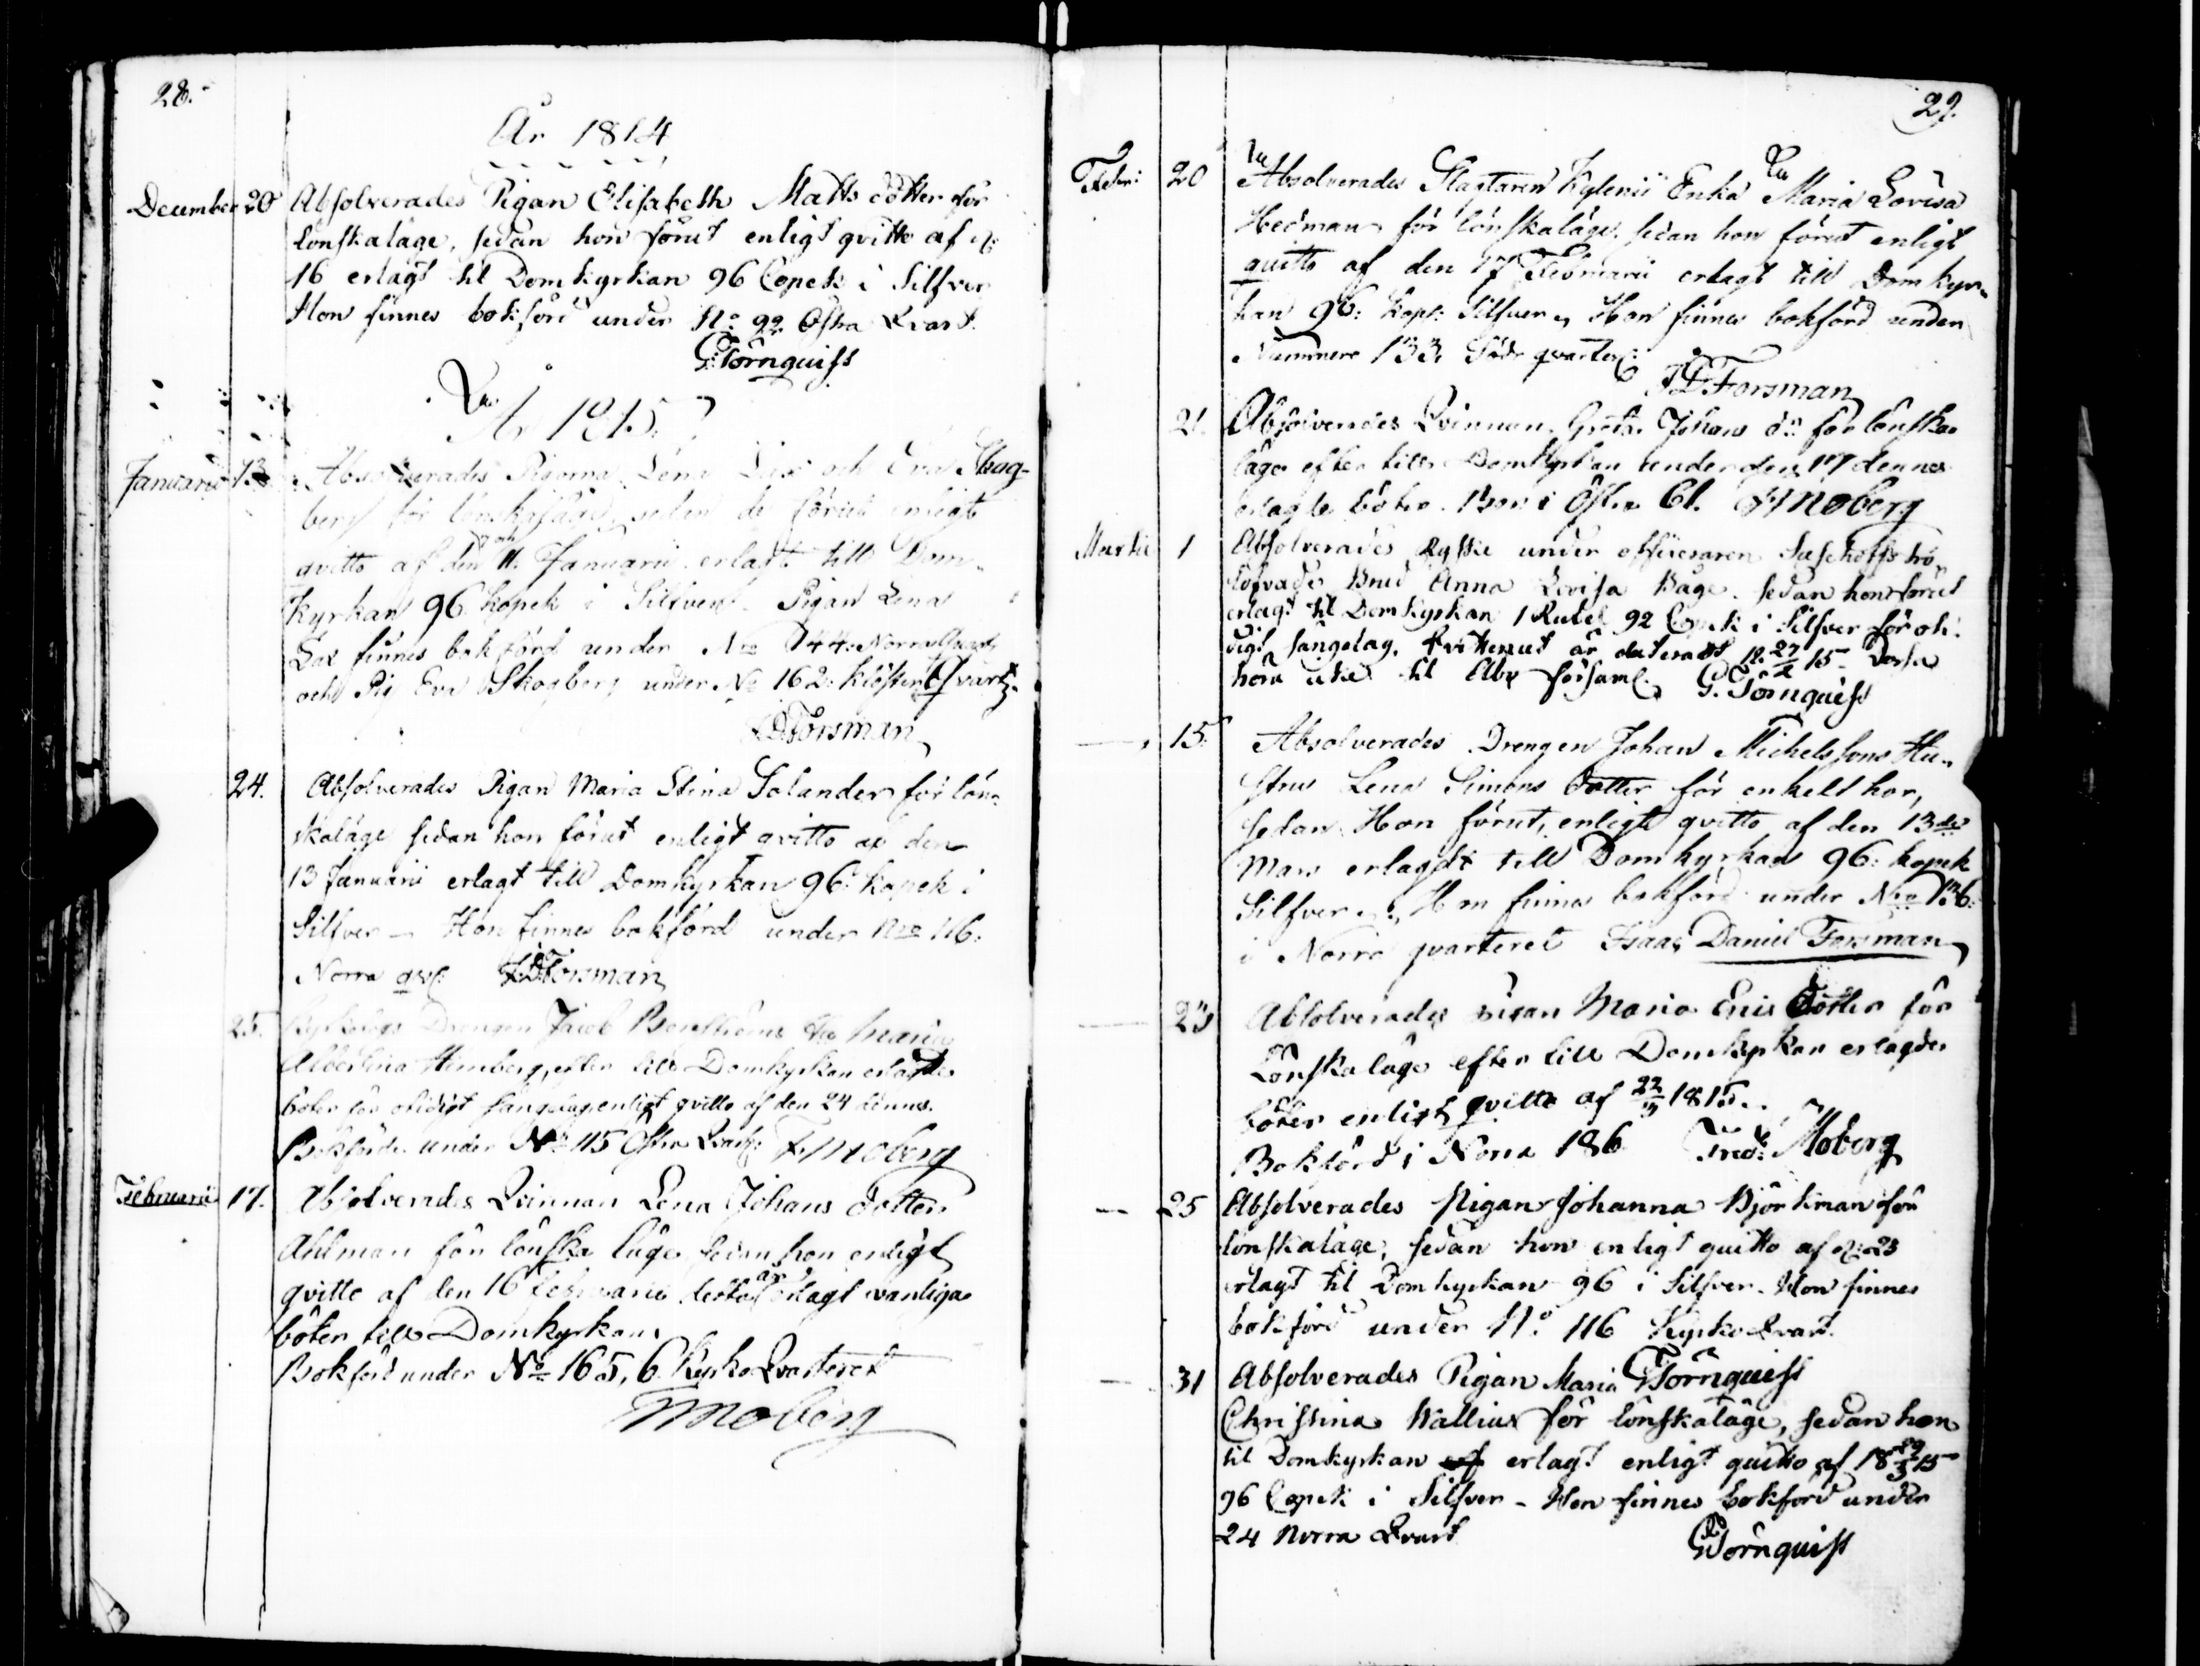 28.
År 1814
December 20 Absolverades Pigan Elisabeth Matts dotter för
lönskaläge, sedan hon förut enligt qvitto af d:
16 erlagt til Domkyrkan 96 Copek i Silfver
Hon finnes bokförd under N:o 92 Östra Qvart.
G: Törnquist
År 1815.
Januarii 13 Absolverades Pigorna Lena Lax och Eva Skog-
berg för lönskaläge, sedan de förut enligt
qvitto af den 11. Januarii erlagt till Dom-
kyrkan 96 kopek i Silfver. Pigan Lena
Lax finnes bokförd under Nro 144 Norra Qvart
och Pig Eva Skogberg under No 162. Kloster Qvart.
I D Forsman
24. Absolverades Pigan Maria Stina Solander för lön-
skaläge sedan hon förut enligt qvitto af den
13 Januarii erlagt till Domkyrkan 96 kopek i
Silfver – Hon finnes bokförd under Nro 116.
Norra qv: I: D Forsman
25. Kyrkotogs Drengen Jacob Maria
Albertina efter till Domkyrkan erlagde
böter för otidigt sängelag enligt qvitto af den 24 dennes.
Bokförde under No 115 Östra Qvart: F. Moberg
Februarii 17. Absolverades Qvinnan Lena Johans dotter
Ahlman för lönska läge sedan hon enligt
qvitto af den 16 Februarii erlagt vanliga
böter till Domkyrkan.
Bokförd under No 165, 6. Kyrko Qvarteret
F Moberg
29.
Febr: 20 Absolverades Slagtaren Kylenii Enka Maria Lovisa
Hedman för lönskaläge. sedan hon förut enligt
quitto af den 17 Februarii erlagt till Domkyr-
kan 96: kop: Silfver, Hon finnes bokförd under
Nummero 133. Södr qvarter:
I D. Forsman
21. Absolverades Qvinnan Greta Johans dr för lönska
läge efter till Domkyrkan under den 17 dennes
erlagde böter. Bor i Östra 61. F Moberg
Martii 1 Absolverades Ryske under officeraren tro-
lofvade Brud Anna Lovisa Båge. sedan hon förut
erlagt til Domkyrkan 1 Rubel 92 Copek i Silfver för oti-
digt sängelag. Qvittensen är daterad d. 27/2 15. Dessa
höra icke til Åbo församl: G. Törnquist
15. Absolverades Drengen Johan Michelssons Hu-
stru Lena Simons dotter för enkelt hor,
sedan Hon förut, enligt qvitto af den 13de
Mars erlagdt till Domkyrkan 96: kopek
Silfver. Hon finnes bokförd under Nro 136:
i Norra qvarteret Isaac Daniel Forsman
23 Absolverades pigan Maria Erics dotter för
Lönskaläge efter till Domkyrkan erlagde
böter enligt qvitto af 22/3 1815.
Bokförd i Norra 186 Fred: Moberg
25 Absolverades Pigan Johanna Björkman för
lönskaläge, sedan hon enligt quitto af d: 23
erlagt til Domkyrkan 96 i Silfver. Hon finnes
bokförd under N:o 116 Kyrko Qvart.
G Törnquist
31 Absolverades Pigan Maria
Christina Wallius för lönskaläge, sedan hon
til Domkyrkan erlagt enligt quitto af 18 29/3 15
96 Copek i Silfver – Hon finnes bokförd under
24 Norra Qvart
G Törnquist